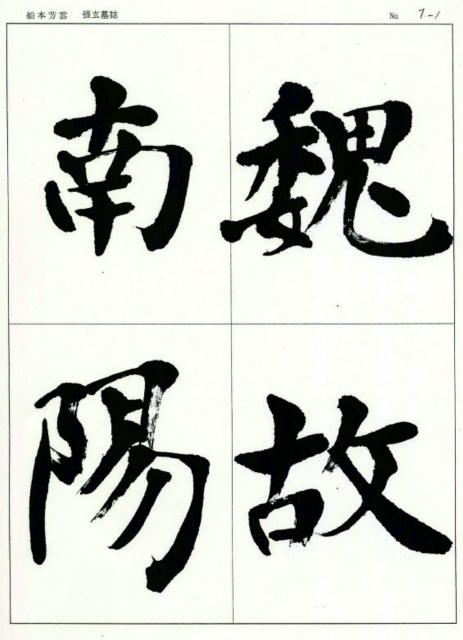 船本芳雲 張玄墓誌
No. 7-1
魏故
南陽